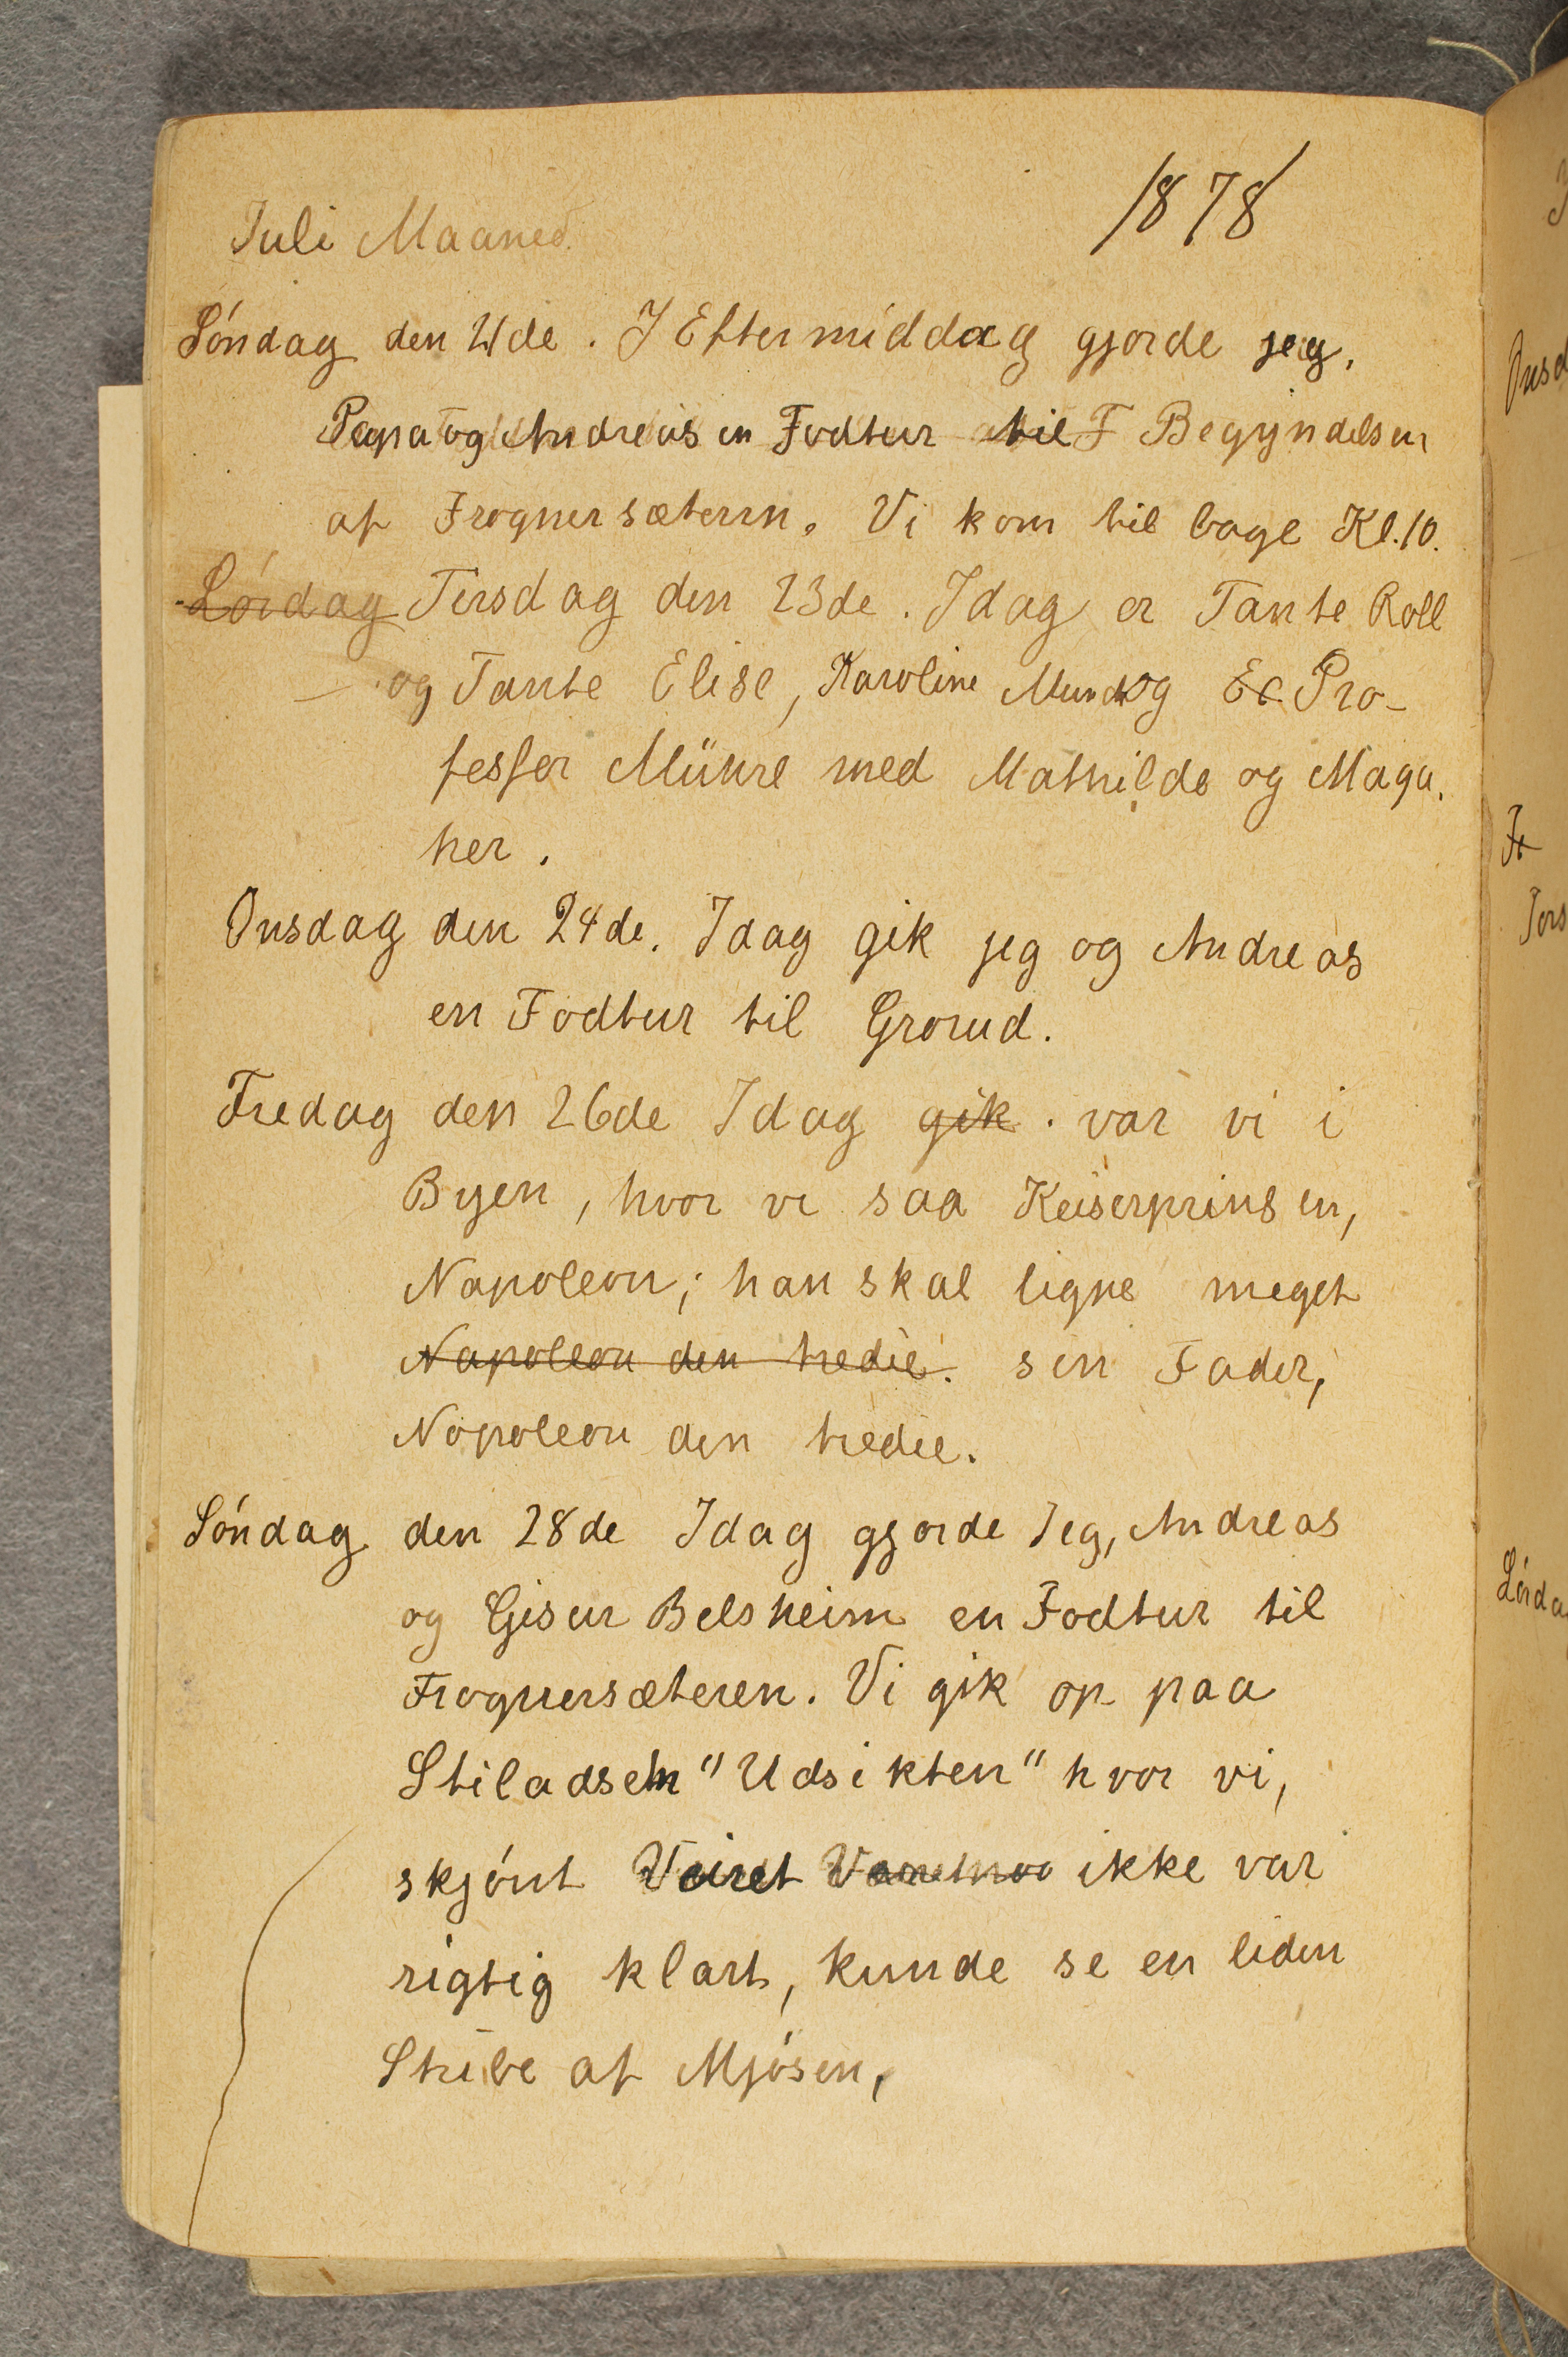 1878
Juli Maaned.
Söndag den 21de. I Eftermiddag gjorde jeg,
Papa og Andreas en Fodtur til F Begyndelsen
af Frognersæteren. Vi kom tilbage Kl. 10.
Lördag Tirsdag den 23de. Idag er Tante Roll
og Tante Elise, Karoline Munch og Pro-
fessor med Mathilde og Maga.
her.
Onsdag den 24de. Idag gik jeg og Andreas
en Fodtur til Grorud.
Fredag den 26de Idag gik. var vi i
Byen, hvor vi saa Keiserprinsen,
Napoleon; han skal ligne meget
Napoleon den tredie. sin Fader,
Napoleon den tredie.
Söndag den 28de Idag gjorde Jeg, Andreas
og Gisur Belsheim en Fodtur til
Frognersæteren. Vi gik op paa
Stiladsen "Udsikten" hvor vi,
skjönt Veiret ikke var
rigtig klart, kunde se en liden
Stribe af Mjösen,
Onsd
Fr
Tors
Lörda